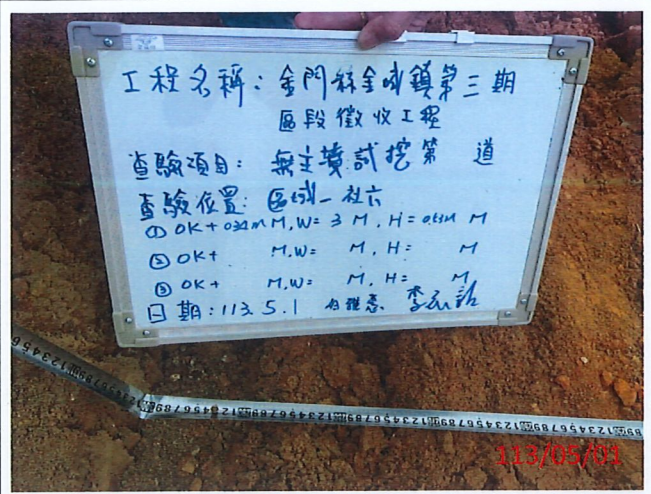 工程名稱：金門縣金城鎮第三期
區段徵收工程
查驗項目：無主墳試挖第　道
查驗位置：區域一社六
① 0K+032M M,W= 3 M, H= 0.63M M
② 0K+ M,W= M, H= M
③ 0K+ M,W= M, H= M
日期：113.5.1
113/05/01